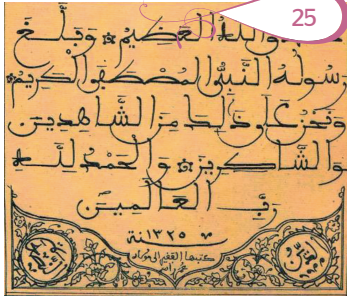 25
الله العظيم وبلغ
رسوله النبي المصطفى الكريم
ونحن على ذلك من الشاهدين
والشاكرين والحمد لله
رب العالمين
سنة ١٣٢٥
كتبها الفقير الى مولاه